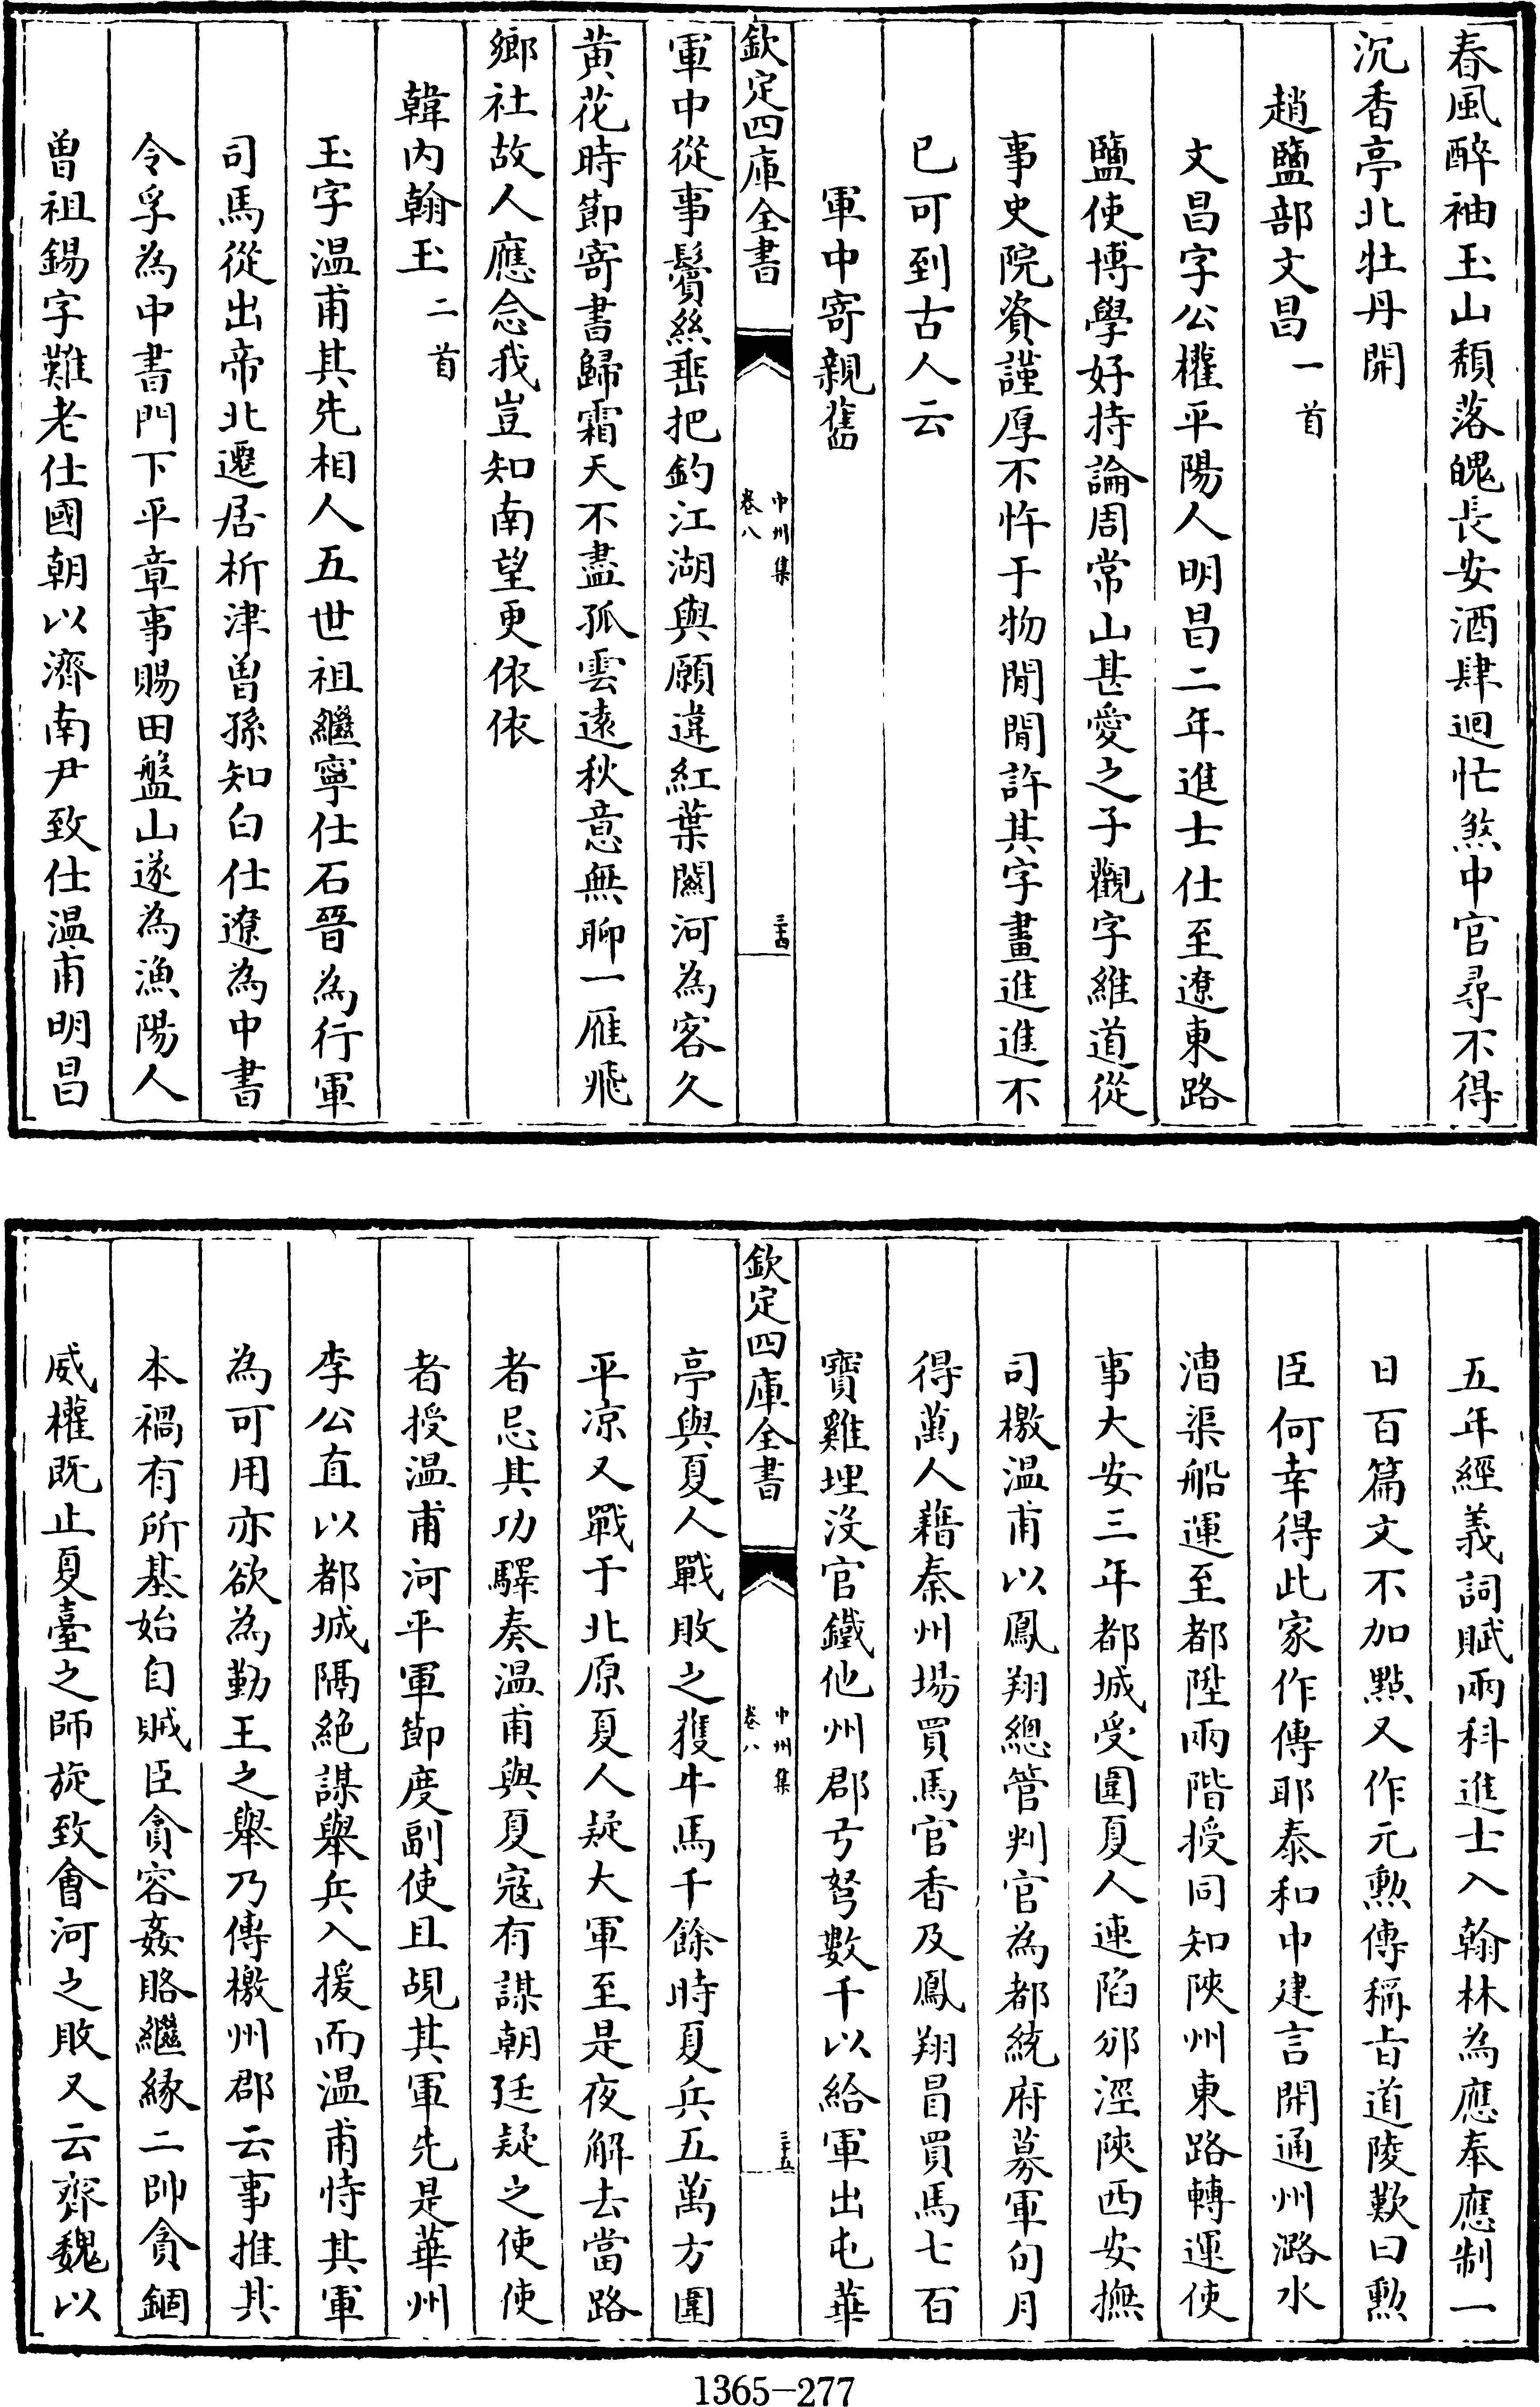 春風醉袖玉山頹落魄長安酒肆迴忙煞中官尋不得
沉香亭北牡丹開
趙鹽部文昌一首
文昌字公權平陽人明昌二年進士仕至遼東路
鹽使博學好持論周常山甚愛之子觀字維道從
事史院資謹厚不忤于物閒閒許其字畫進進不
已可到古人云
軍中寄親舊
欽定四庫全書
中州集
卷八
三十四
軍中從事鬢絲垂把釣江湖與願違紅葉關河為客久
黄花時節寄書歸霜天不盡孤雲遠秋意無聊一雁飛
鄉社故人應念我豈知南望更依依
韓内翰玉二首
玉字温甫其先相人五世祖繼寧仕石晉為行軍
司馬從出帝北遷居析津曾孫知白仕遼為中書
令孚為中書門下平章事賜田盤山遂為漁陽人
曽祖錫字難老仕國朝以濟南尹致仕温甫明昌
五年經義詞賦兩科進士入翰林為應奉應制一
日百篇文不加點又作元勲傳稱旨道陵歎曰勲
臣何幸得此家作傳耶泰和中建言開通州潞水
漕渠船運至都陞兩階授同知陜州東路轉運使
事大安三年都城受圍夏人連陷邠涇陜西安撫
司檄温甫以鳳翔總管判官為都統府募軍旬月
得萬人藉秦州場買馬官香及鳳翔冒買馬七百
寳雞埋沒官鐵他州郡亏弩數千以給軍出屯華
欽定四庫全書
中州集
卷八
三十五
亭與夏人戰敗之獲牛馬千餘時夏兵五萬方圍
平凉又戰于北原夏人疑大軍至是夜解去當路
者忌其功驛奏温甫與夏寇有謀朝廷疑之使使
者授温甫河平軍節度副使且覘其軍先是華州
李公直以都城隔絶謀舉兵入援而温甫恃其軍
為可用亦欲為勤王之舉乃傳檄州郡云事推其
本禍有所基始自賊臣貪容姦賂繼緣二帥貪錮
威權既止夏臺之師旋致會河之敗又云齊魏以
1365-277